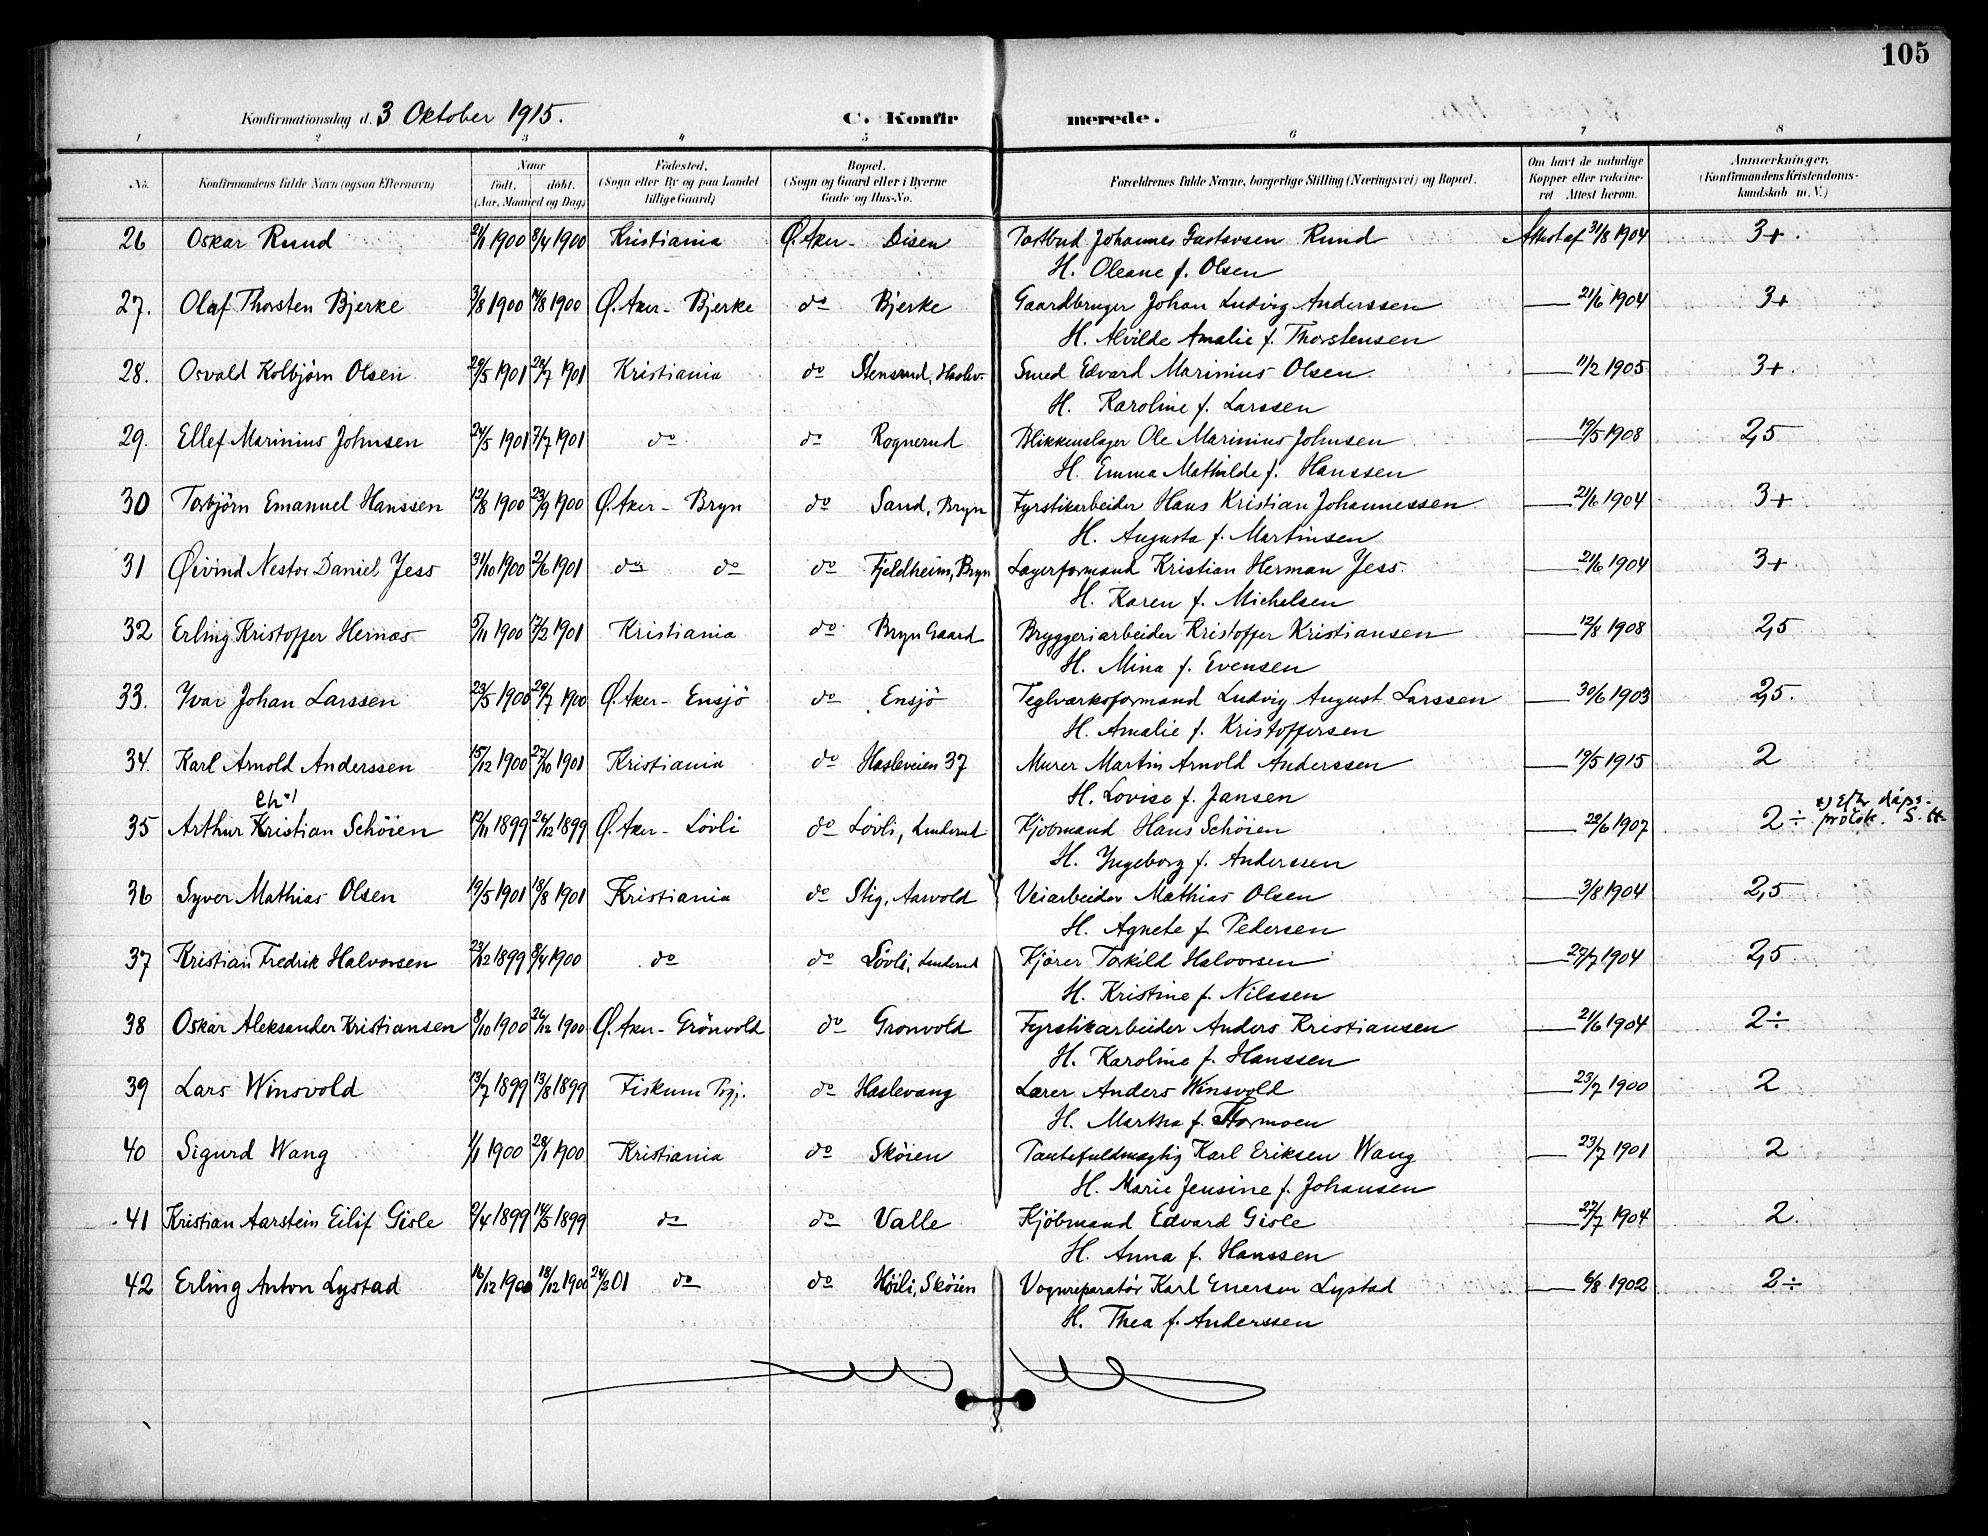 105
Konfirmationsdag d. 3 Oktober 1915. C. Konfir merede.
1 2 3 4 5 6 7 8
No. Konfirmandens fulde Navn (ogsaa Efternavn) Naar født. døbt. (Aar, Maaned og Dag) Fødested. (Sogn eller By og paa Landet tillige Gaard) Bopæl. (Sogn og Gaard eller i Byerne Gade og Hus-No. Forældrenes fulde Navne, borgerlige Stilling (Næringsvei) og Bopæl. Om havt de naturlige Kopper eller vakcineret Attest herom. Anmærkninger. (Konfirmandens Kristendomskundskab m. V.)
26 Oskar Rund 1900 8/4 1900 Kristiania Ø. Aker - Disen Postbud Johannes Gustavsen Rund Attest af 31/8 1904 3+.
H. Oleane f. Olsen
27. Olaf Thorsten Bjerke 3/8 1900 1900 Ø. Aker - Bjerke do Bjerke Gaardbruger Johan Ludvig Anderssen — 21/6 1904 3+
H. Alvilde Amalie f. Thorstensen
28. Osvald Kolbjörn Olsen 1901 28/7 1901 Kristiania do Stensrud, Haslev. Smed Edvard Marinius Olsen — 11/2 1905 3+.
H. Karoline f. Larssen
29. Ellef Marinius Johnsen 24/5 1901 7/7 1901 do do Rognerud Blikkenslager Ole Marinius Johnsen — 19/5 1908 2,5
H. Emma Mathilde f. Hanssen
30 Torbjörn Emanuel Hanssen 12/8 1900 23/9 1900 Ø. Aker - Bryn do Sand, Bryn Fyrstikarbeider Hans Kristian Johannessen — 21/6 1904 3+
H. Augusta f. Martinsen
31 Øivind Nestor Daniel Jess 31/10 1900 2/6 1901 do do do Fjeldheim, Bryn Lagerformand Kristian Herman Jess. — 21/6 1904 3+.
H. Karen f. Michelsen
32 Erling Kristoffer Hernæs 5/11 1900 17/2 1901 Kristiania do Bryn Gaard Bryggeriarbeider Kristoffer Kristiansen — 12/8 1908 2,5
H. Mina f. Evensen
33. Yvar Johan Larssen 23/5 1900 29/7 1900 Ø. Aker - Ensjö do Ensjö Teglværksformand Ludvig August Larssen — 30/6 1903 2,5.
H. Amalie f. Kristoffersen
34. Karl Arnold Anderssen 15/12 1900 27/10 1901 Kristiania do Hasleveien 37 Murer Martin Arnold Anderssen — 19/5 1915 2
H. Lovise f. Jansen
Ch x)
35 Arthur Kristian Schöien 12/11 1899 24/12 1899 Ø. Aker - Lövli do Lövli, Linderud Kjöbmand Hans Schöien — 22/6 1907 2 ÷ x) Eftr dåps-protok. S. H
H. Yngeborg f. Anderssen
36 Syver Mathias Olsen 19/5 1901 18/8 1901 Kristiania do Stig, Aarvold Veiarbeider Mathias Olsen — 3/8 1904 2,5
H. Agnete f. Pedersen
37 Kristian Fredrik Halvorsen 23/12 1899 8/4 1900 do do Lövli, Linderud Kjörer Torkild Halvorsen — 27/7 1904 2,5.
H. Kristine f. Nilssen
38 Oskar Aleksander Kristiansen 8/10 1900 26/12 1900 Ø. Aker - Grönvold do Gronvold Fyrstikarbeider Anders Kristiansen — 21/6 1904 2÷
H. Karoline f. Hanssen
39 Lars Winsvold 13/7 1899 13/8 1899 Fiskum Pgj. do Haslevang Lærer Anders Winsvold — 23/7 1900 2
H. Martha f. Stormoen
40 Sigurd Wang 1/1 1900 28/1 1900 Kristiania do Sköien Pantefuldmægtig Karl Eriksen Wang — 23/7 1901 2
H. Marie Jensine f. Johansen
41 Kristian Aarstein Eilif Gisle 2/4 1899 14/5 1899 do do Valle Kjöbmand Edvard Gisle — 27/7 1904 2.
H. Anna f. Hanssen
42 Erling Anton Lystad 16/12 1900 18/12 1900 24/3 01 do do Höili, Sköien Vognreparatör Karl Enersen Lystad — 6/8 1902 2÷
H. Thea f. Anderssen